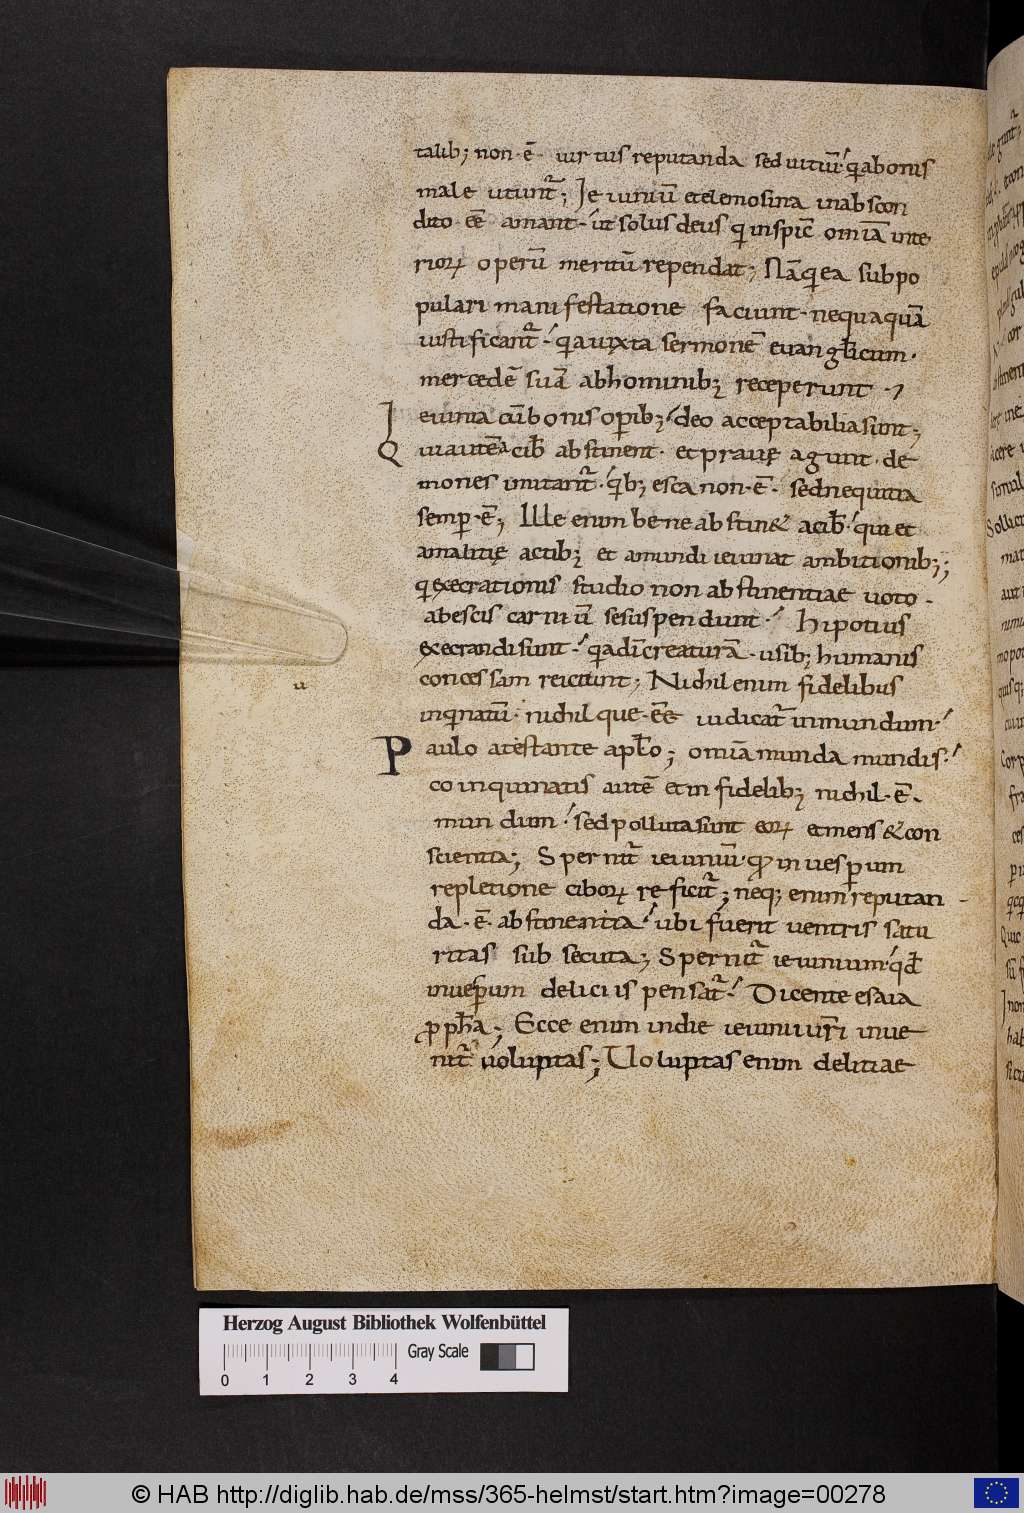 talib; non · ē · uirtus reputanda sed uitiū q̄a bonis
male utunt᷑; Ieiuniū et elemosina in abscon
dito · eē amant · ut solus deus q̄ inspic̄ omīa inte
rioꝝ operū meritū rependat; Nā q̄ ea sub po
pulari manifestatione faciunt · nequaquā
iustificant᷑ · q̄a iuxta sermonē euanglīcum ·
mercedē suā ab hominibꝫ receperunt ·
Ieiunia cū bonis opibꝫ · deo acceptabilia sunt;
Qui autē a cib̄ abstinent · et prauę agunt · de
mones imitant᷑ · qib; esca non · ē · sed nequitia
semp · ē; Ille enim bene abstin& a cib̄ · qui et
a malitię actibꝫ et a mundi ieiunat ambitionibꝫ;
q execrationis studio non abstinentiae uoto ·
ab escis carniū se suspendunt · hi potius
execrandi sunt · q̄a dī creaturā · usib; humanis
concessam reiciunt; Nichil enim fidelibus
inqinatū · nichilque · eē iudicat᷑ inmundum ·
Paulo atestante aplo; omīa munda mundis ·
coinquinatis autē et infidelibꝫ nichil · ē ·
mundum · sed polluta sunt eoꝝ et mens & con
scientia; Spernit᷑ ieiuniū · q̄ in uesperum
repletione ciboꝝ reficit᷑; neq; enim reputan
da · ē · abstinentia · ubi fuerit uentris satu
ritas subsecuta; Spernit᷑ ieiunium · qđ
in uesperum deliciis pensat᷑ · Dicente esaia
ꝓpha; Ecce enim in die ieiunii ur̄i inue
nit᷑ uoluptas; Uoluptas enim delitiae
u
Herzog August Bibliothek Wolfenbüttel
Gray Scale
0 1 2 3 4
© HAB http://diglib.hab.de/mss/365-helmst/start.htm?image=00278